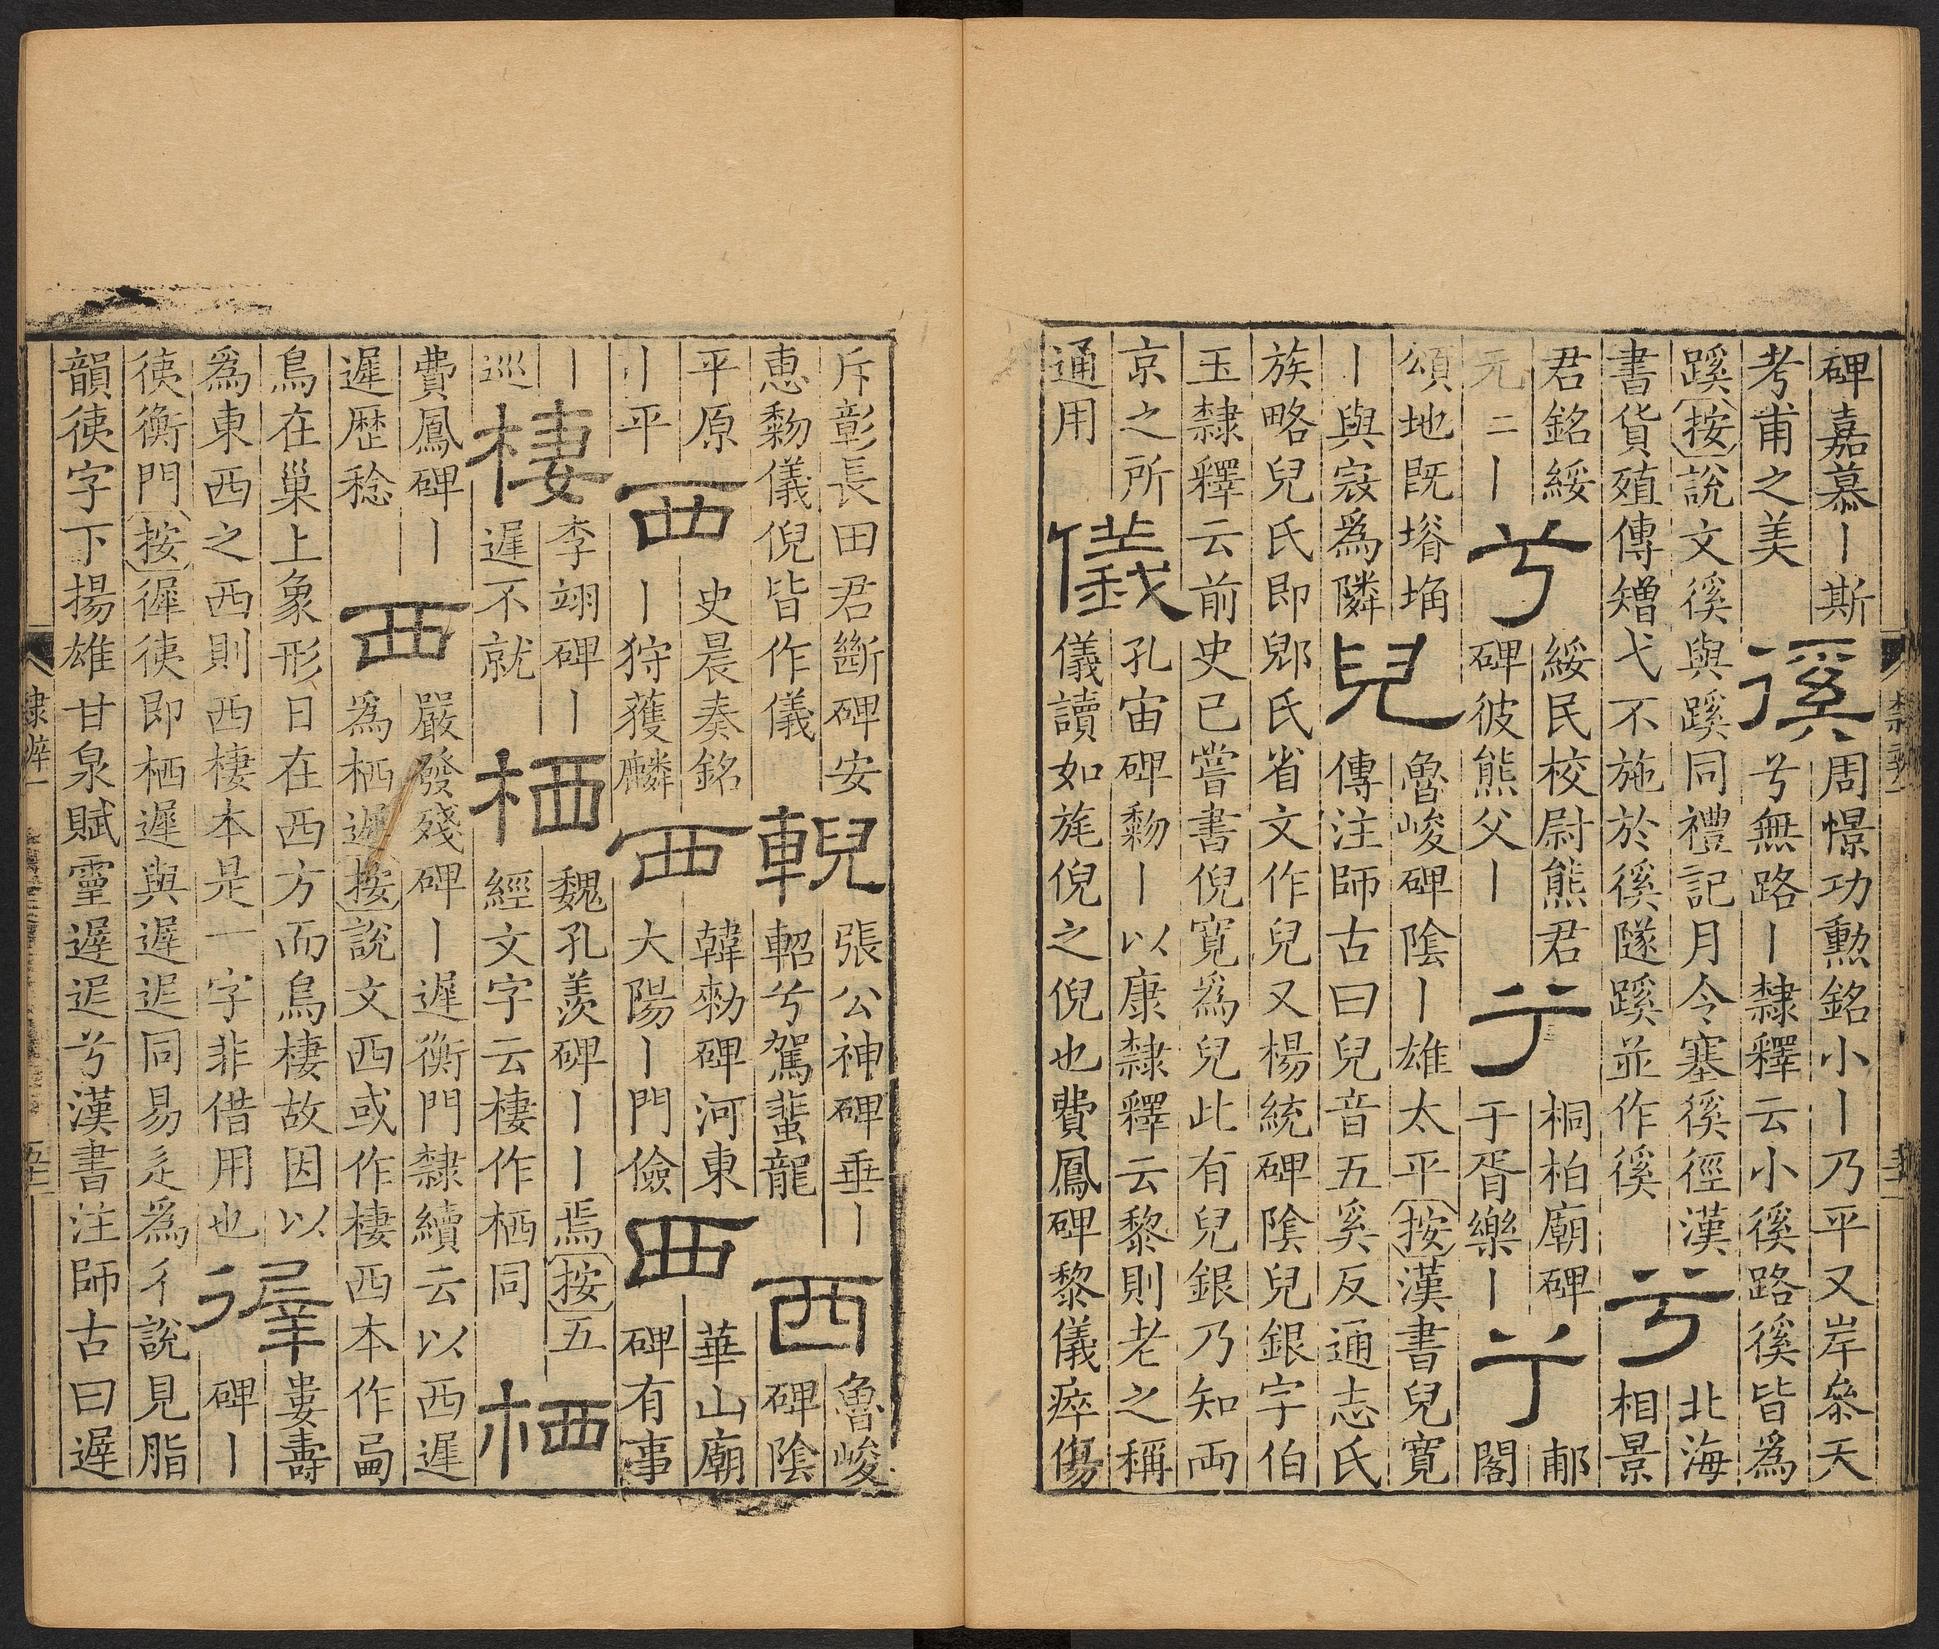 碑嘉慕丨斯徯周憬功勲銘小丨乃平又岸叅天
考甫之美兮無路丨隸釋云小徯路徯皆為
蹊按說文徯與蹊同禮記月令塞徯徑漢兮北海
書貨殖傳矰弋不施於徯隧蹊並作徯相景
君銘綏兮綏民校尉熊君兮桐柏廟碑兮郙
元二丨碑彼熊父丨于胥樂丨閣
頌地既塉埆兒魯峻碑陰丨雄太平按漢書兒寬
丨與寇為隣傳注師古曰兒音五奚反通志氏
族略兒氏即郳氏省文作兒又楊統碑陰兒銀字伯
玉隸釋云前史已嘗書倪寬為兒此有兒銀乃知両
京之所儀孔宙碑黎丨以康隸釋云黎則老之稱
通用儀讀如旄倪之倪也費鳳碑黎儀瘁傷
斥彰長田君斷碑安輗張公神碑垂丨西魯峻
惠黎儀倪皆作儀軺兮駕蜚龍碑陰
平原西史晨奏銘西韓勑碑河東西華山廟
丨平丨狩獲麟大陽丨門儉碑有事
丨棲李翊碑丨栖魏孔羨碑丨丨焉按五栖
巡遲不就經文字云棲作栖同
費鳳碑丨西嚴發殘碑丨遲衡門隸續云以西遲
遲歷稔為栖遲按說文西或作棲西本作
鳥在巢上象形日在西方而鳥棲故因以徲婁壽
為東西之西則西棲本是一字非借用也碑丨
𢓡衡門按徲𢓡即栖遲與遲迡同易辵為彳說見脂
韻𢓡字下揚雄甘泉賦靈遲迡兮漢書注師古曰遲